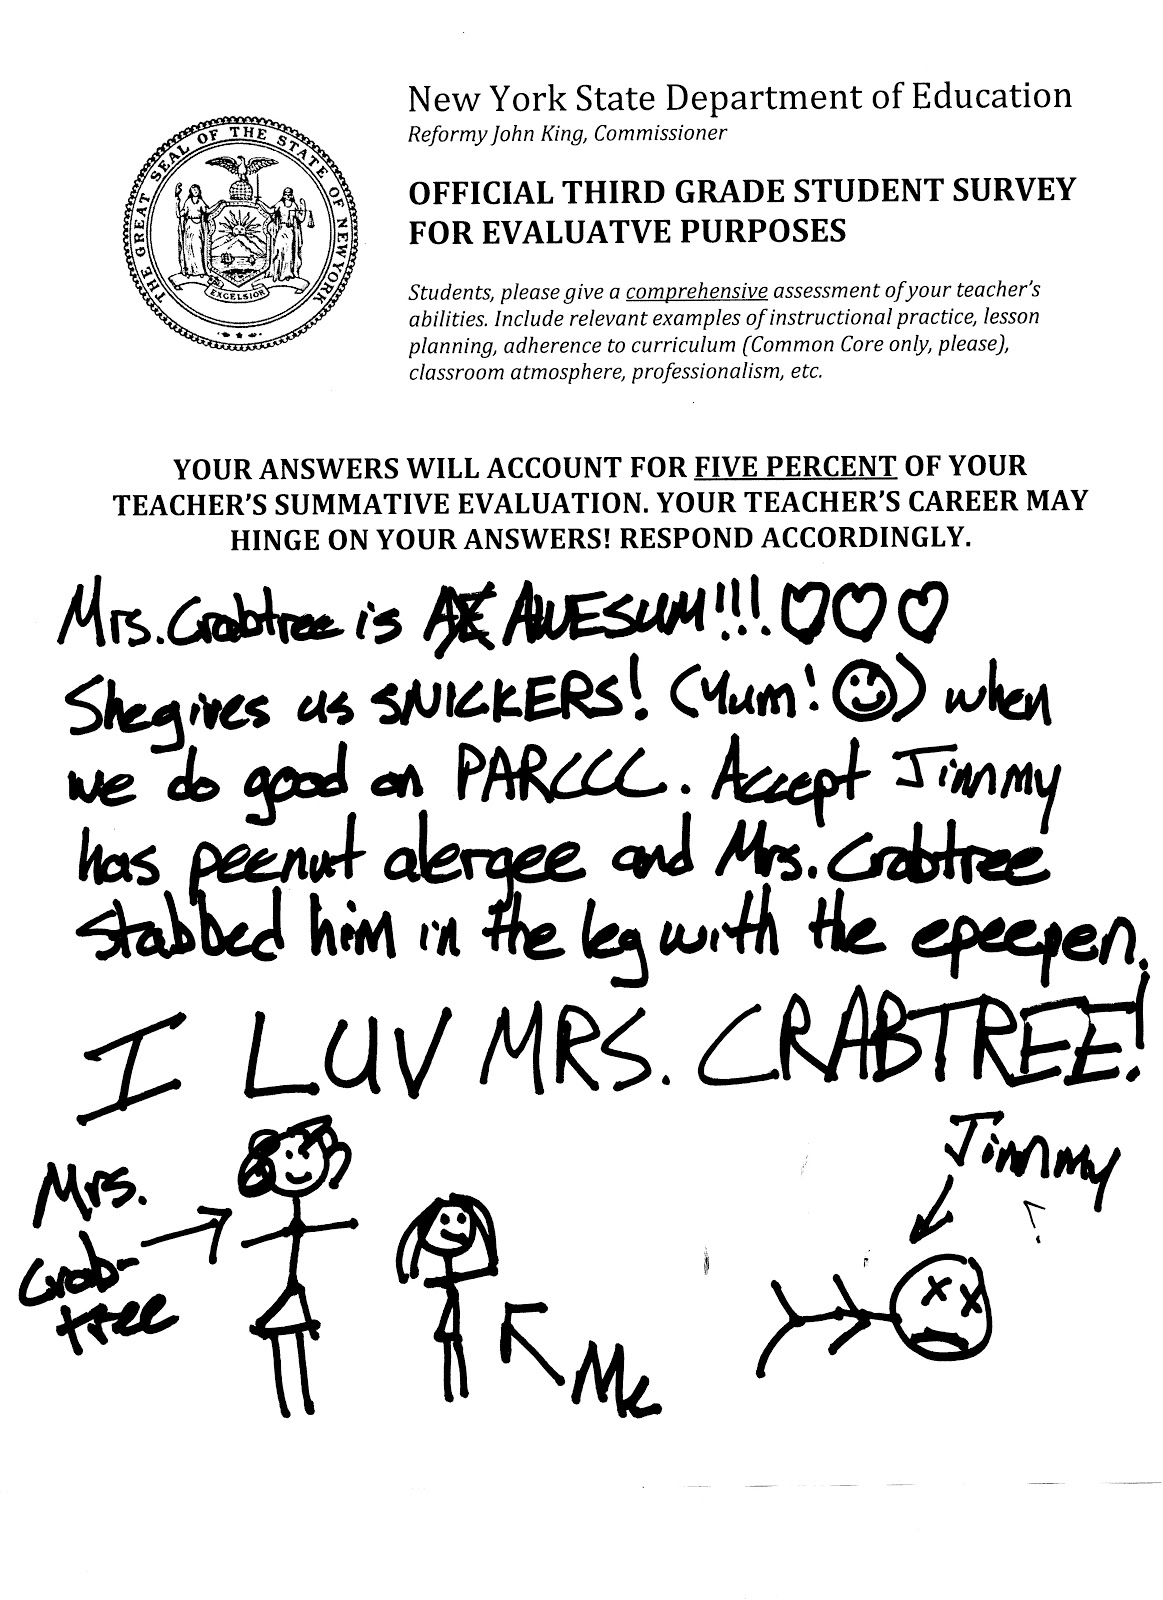 New York State Department of Education
Reformy John King, Commissioner
THE GREAT SEAL OF THE STATE OF NEW YORK
EXCELSIOR
OFFICIAL THIRD GRADE STUDENT SURVEY
FOR EVALUATVE PURPOSES
Students, please give a comprehensive assessment of your teacher's
abilities. Include relevant examples of instructional practice, lesson
planning, adherence to curriculum (Common Core only, please),
classroom atmosphere, professionalism, etc.
YOUR ANSWERS WILL ACCOUNT FOR FIVE PERCENT OF YOUR
TEACHER'S SUMMATIVE EVALUATION. YOUR TEACHER'S CAREER MAY
HINGE ON YOUR ANSWERS! RESPOND ACCORDINGLY.
Mrs. Crabtree is AWESUM!!!
She gives us SNICKERS! (Yum!) when
we do good on PARCCC. Accept Jimmy
has peenut alergee and Mrs. Crabtree
stabbed him in the leg with the epeepen.
I LUV MRS. CRABTREE!
Mrs.
Crab-
tree
Me
Jimmy